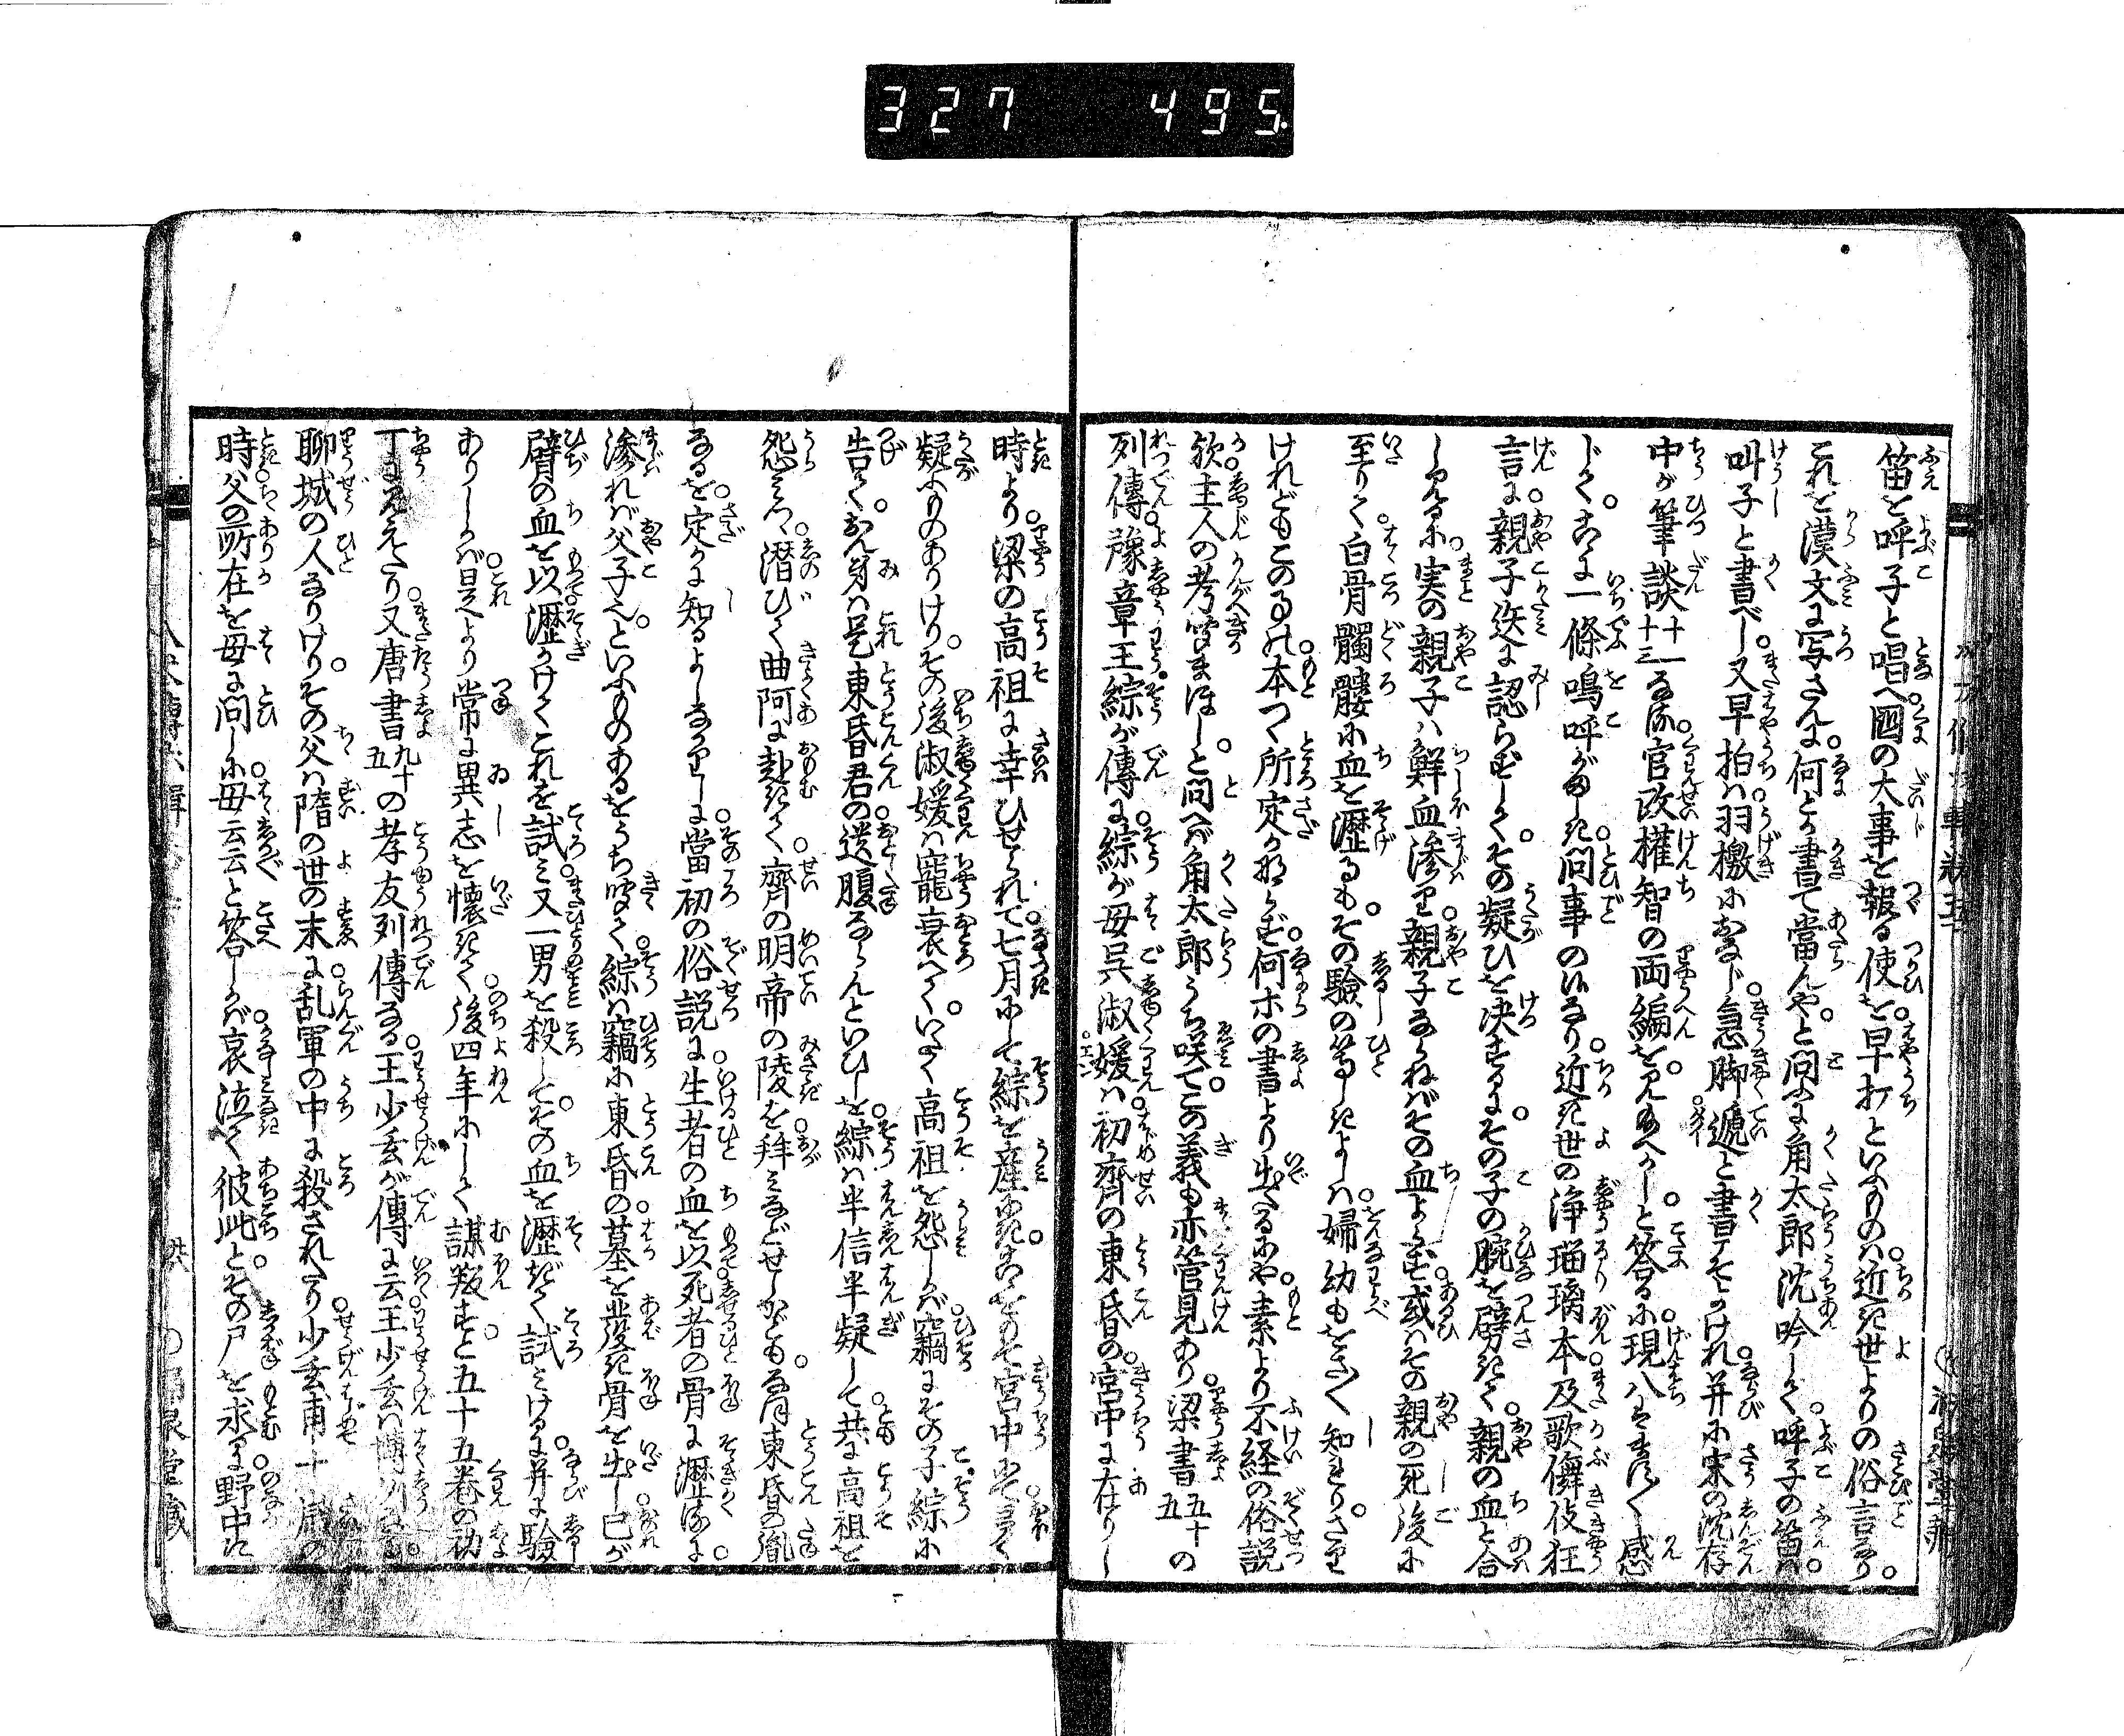 327 495
笛を呼子と唱へ国の大事を報る使を早打といふものは近き世よりの俗言なり。
これを漢文に写さんに何とか書て當んやと問ふに角太郎沈吟して呼子の笛は。
叫子と書べし又早拍は羽檄におなじ急脚遞と書てそかけれ并に宋の沈存
中が筆談十一十三なる官政權智の両編を見給へかしと答るに現八はます〳〵感
じて。こゝに一條嗚呼がましき問事の候なり近き世の浄瑠璃本及歌舞伎狂
言に親子迭に認らずしてその疑ひを決するにその子の腕を劈きて親の血と合
しるに実の親子ハ鮮血滲り親子ならねばその血よらず或はその親の死後に
至りて白骨髑髏に血を瀝るもその驗の等しきよしハ婦幼もをさ〳〵知をりさり
けれどもこの事の本つく所定かならず何ホの書より出たるにや素より不経の俗説
歟主人の考索まほしと問へば角太郎うち咲てこの義も亦管見あり梁書五十五の
列傳豫章王綜が傳に綜が母呉淑媛は初齊の東昏の宮中に在りし
時より梁の高祖に幸ひせられて七月にして綜を産にきこゝをもて宮中
疑ふものありけりその後淑媛は寵衰へていたく高祖を怨しかば竊にその子綜に
告ておん身は是東昏君の遺腹ならんといひしを綜は半信半疑して共に高祖を
怨みつゝ潜びて曲阿に赴きて齊の明帝の陵を拜みなどせしかどもなほ東昏の胤
なるを定かに知るよしなかりしに當初の俗説に生者の血を以死者の骨に瀝るに
滲れば父子也といふものあるをうち聴て綜は竊に東昏の墓を發き骨を出し己が
臂の血を以瀝かけてこれを試み又一男を殺してその血を瀝ぎて試みけるに并に驗
ありしかば是より常に異志を懐きて後四年にして謀叛すと五十五巻の初
丁に見えたり又唐書九十五の孝友列傳なる王少玄が傳に云王少玄は博州
聊城の人なりけりその父は隋の世の末に乱軍の中に殺されたり少玄甫十歳の
時父の所在を母に問しに母云云と答しかば哀泣て彼此とその尸を求るに野中に